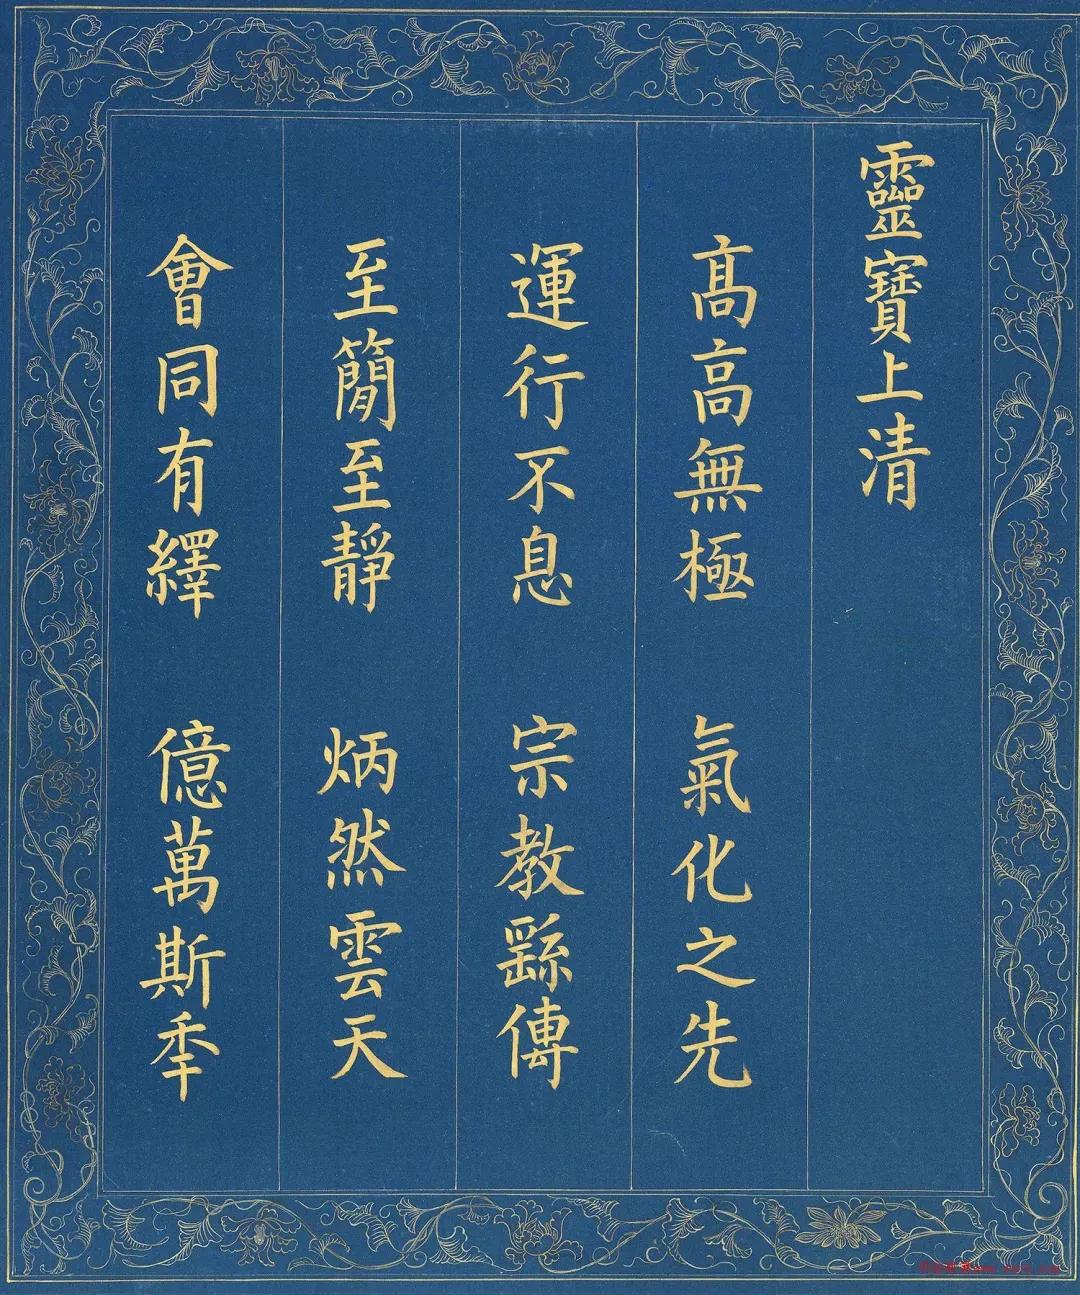 靈寶上清
髙高無極 氣化之先
運行不息 宗教繇傳
至簡至靜 炳然雲天
會同有繹 億萬斯秊